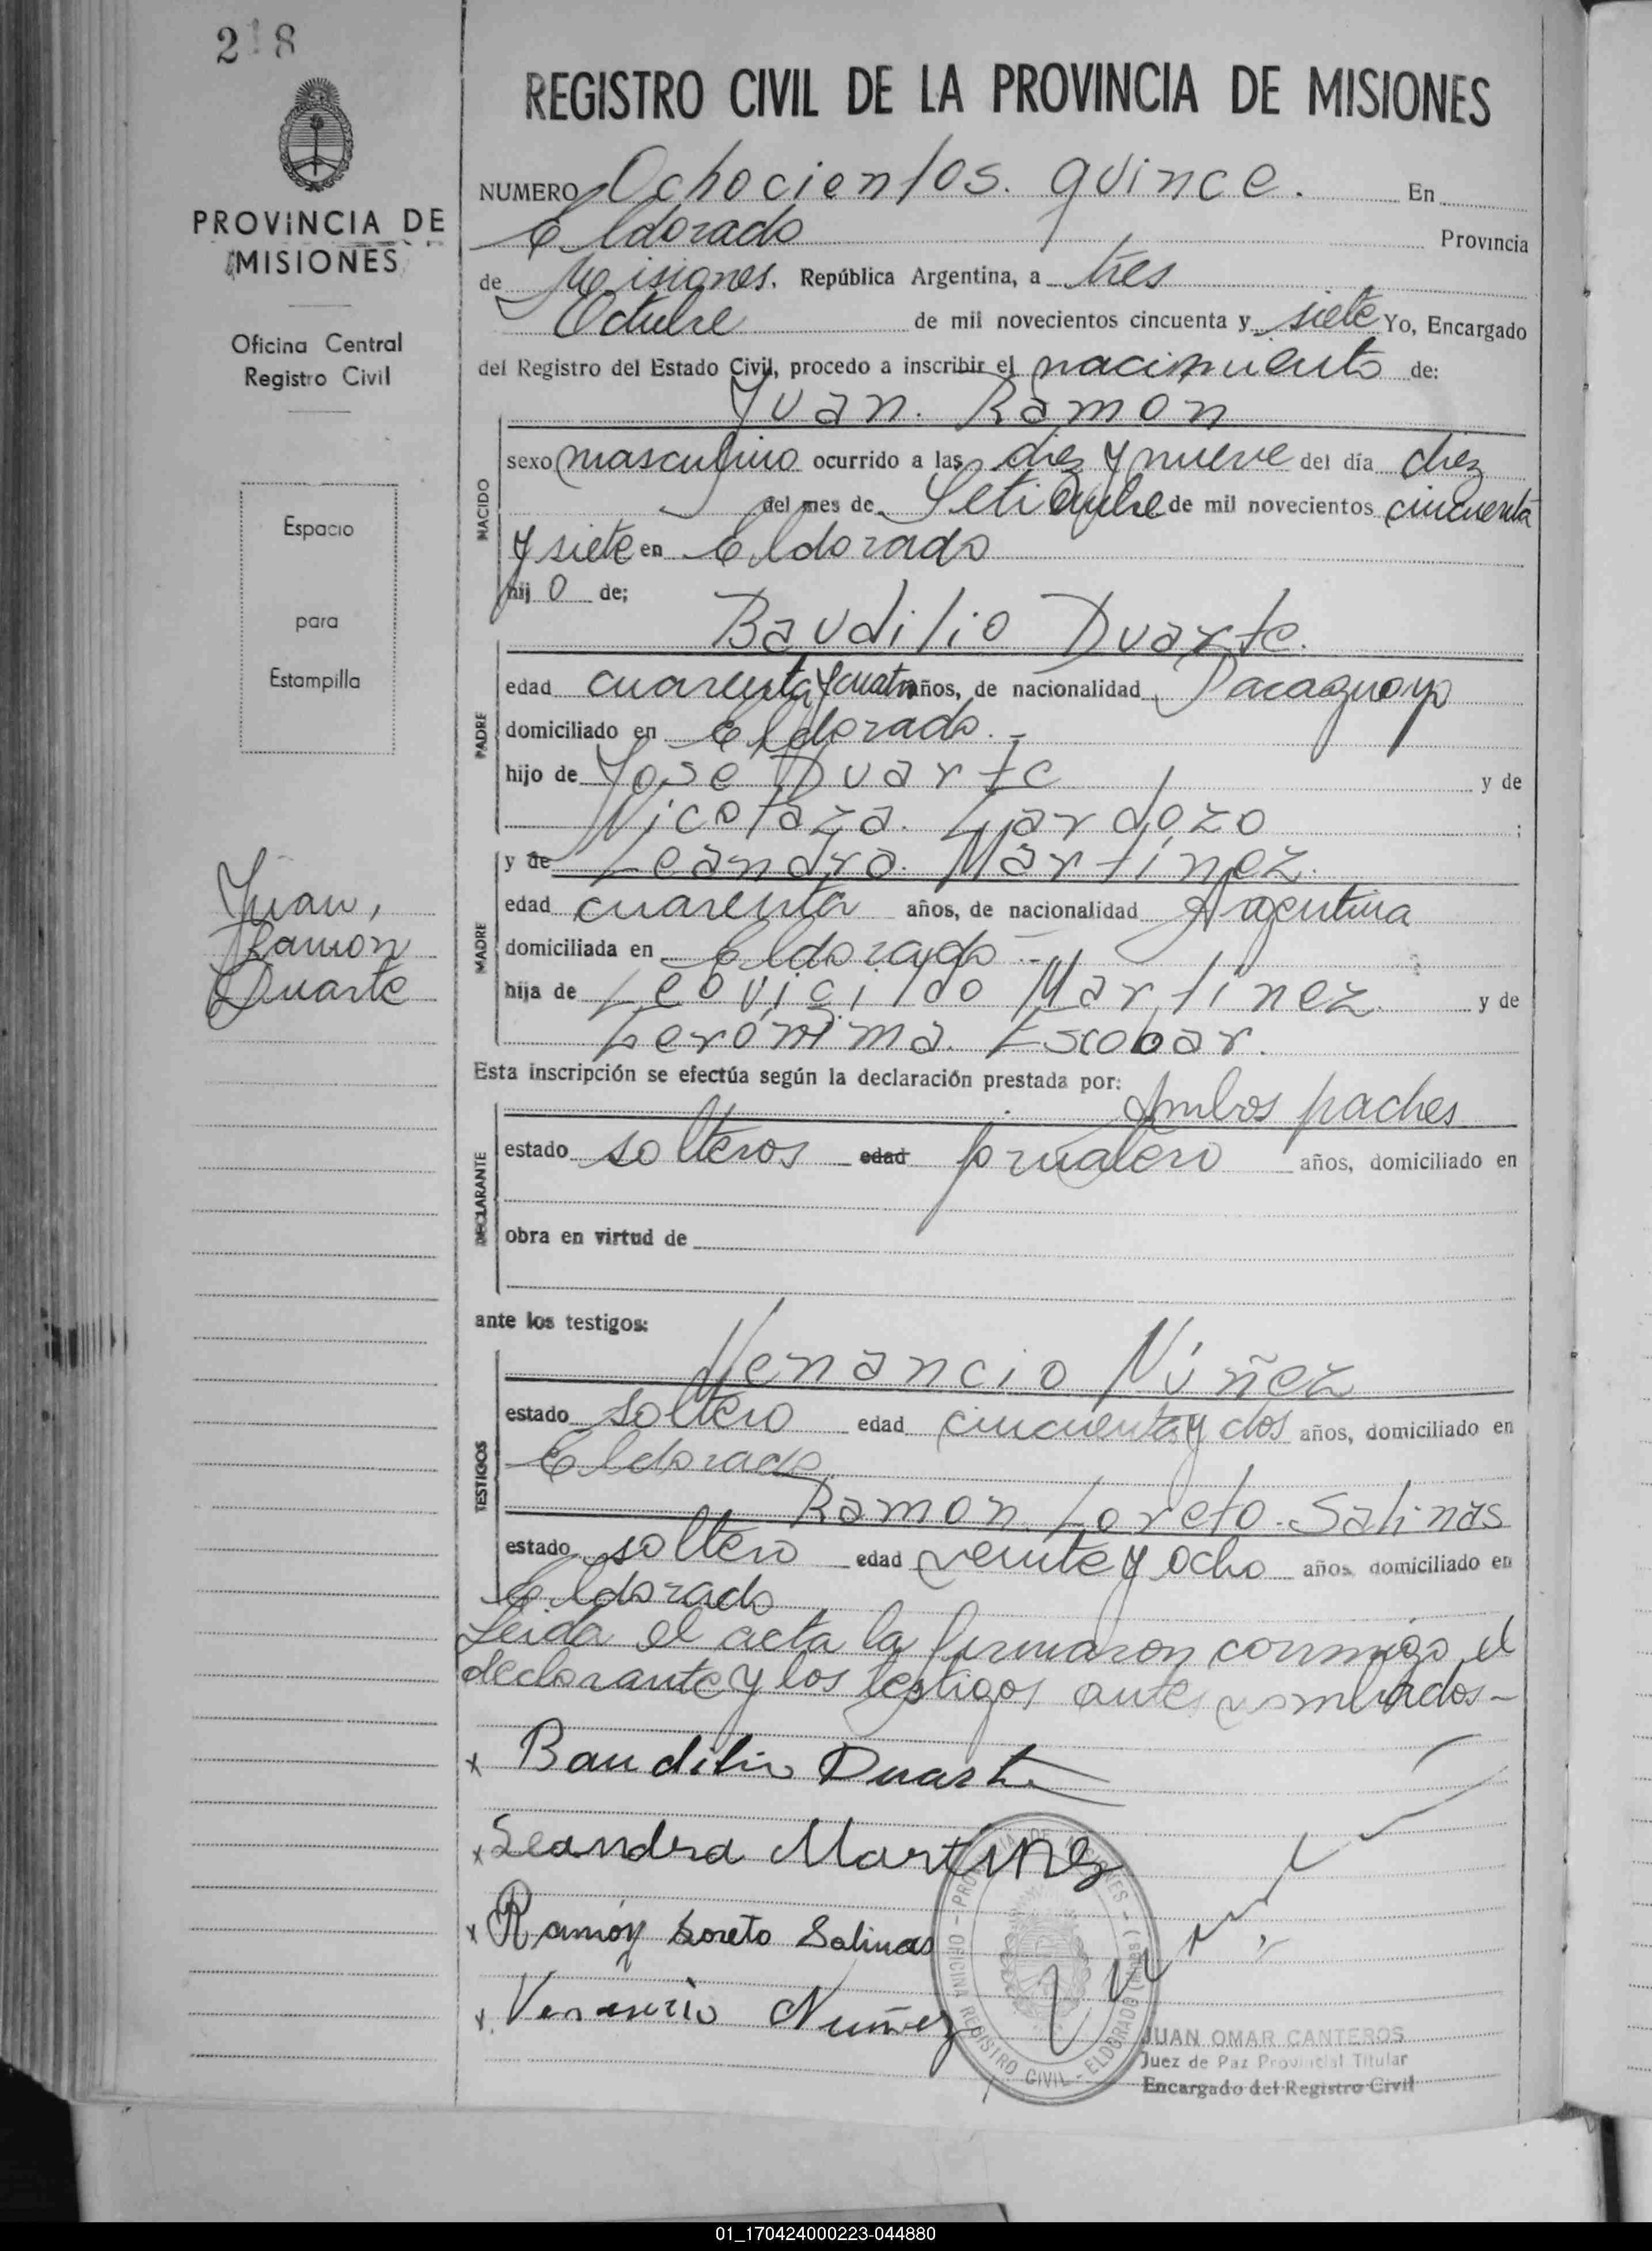 218
PROVINCIA DE
MISIONES
Oficina Central
Registro Civil
Espacio
para
Estampilla
Juan,
Ramon
Duarte
REGISTRO CIVIL DE LA PROVINCIA DE MISIONES
NUMERO Ochocientos. quince. En
Eldorado Provincia
de Misiones. República Argentina, a tres
Octubre de mil novecientos cincuenta y siete Yo, Encargado
del Registro del Estado Civil, procedo a inscribir el nacimiento de:
Juan. Ramon
NACIDO
sexo masculino ocurrido a las diez y nueve del día diez
del mes de Setiembre de mil novecientos cincuenta
y siete en Eldorado
hij o de;
Baudilio Duarte.
PADRE
edad cuarenta y cuatro años, de nacionalidad Paraguayo
domiciliado en Eldorado. -
hijo de Jose Duarte y de
Nicolaza. Gardozo ;
y de Leandra. Martínez.
MADRE
edad cuarenta años, de nacionalidad Argentina
domiciliada en Eldorado. -
hija de Leovigildo Martínez. y de
Gerónima. Escobar.
Esta inscripción se efectúa según la declaración prestada por:
Ambos padres
DECLARANTE
estado solteros edad jornalero años, domiciliado en
obra en virtud de
ante los testigos:
Venancio Núñez
TESTIGOS
estado soltero edad cincuenta y dos años, domiciliado en
Eldorado
Ramon. Loreto. Salinas
estado soltero edad veinte y ocho años, domiciliado en
Eldorado
Leida el acta la firmaron conmigo el
declarante y los testigos antes nombrados-
x Baudilio Duarte
x Leandra Martinez
x Ramón Loreto Salinas
x Venancio Nuñez
PROVINCIA DE MISIONES - OFICINA REGISTRO CIVIL - ELDORADO (Mnes)
JUAN OMAR CANTEROS
Juez de Paz Provincial Titular
Encargado del Registro Civil
01_170424000223-044880